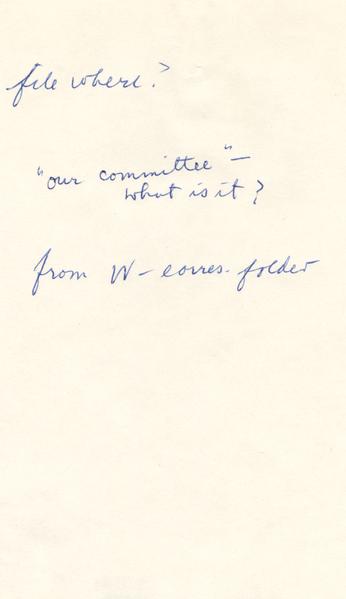 file where?
"our committee" —
what is it?
from W – corres. folder